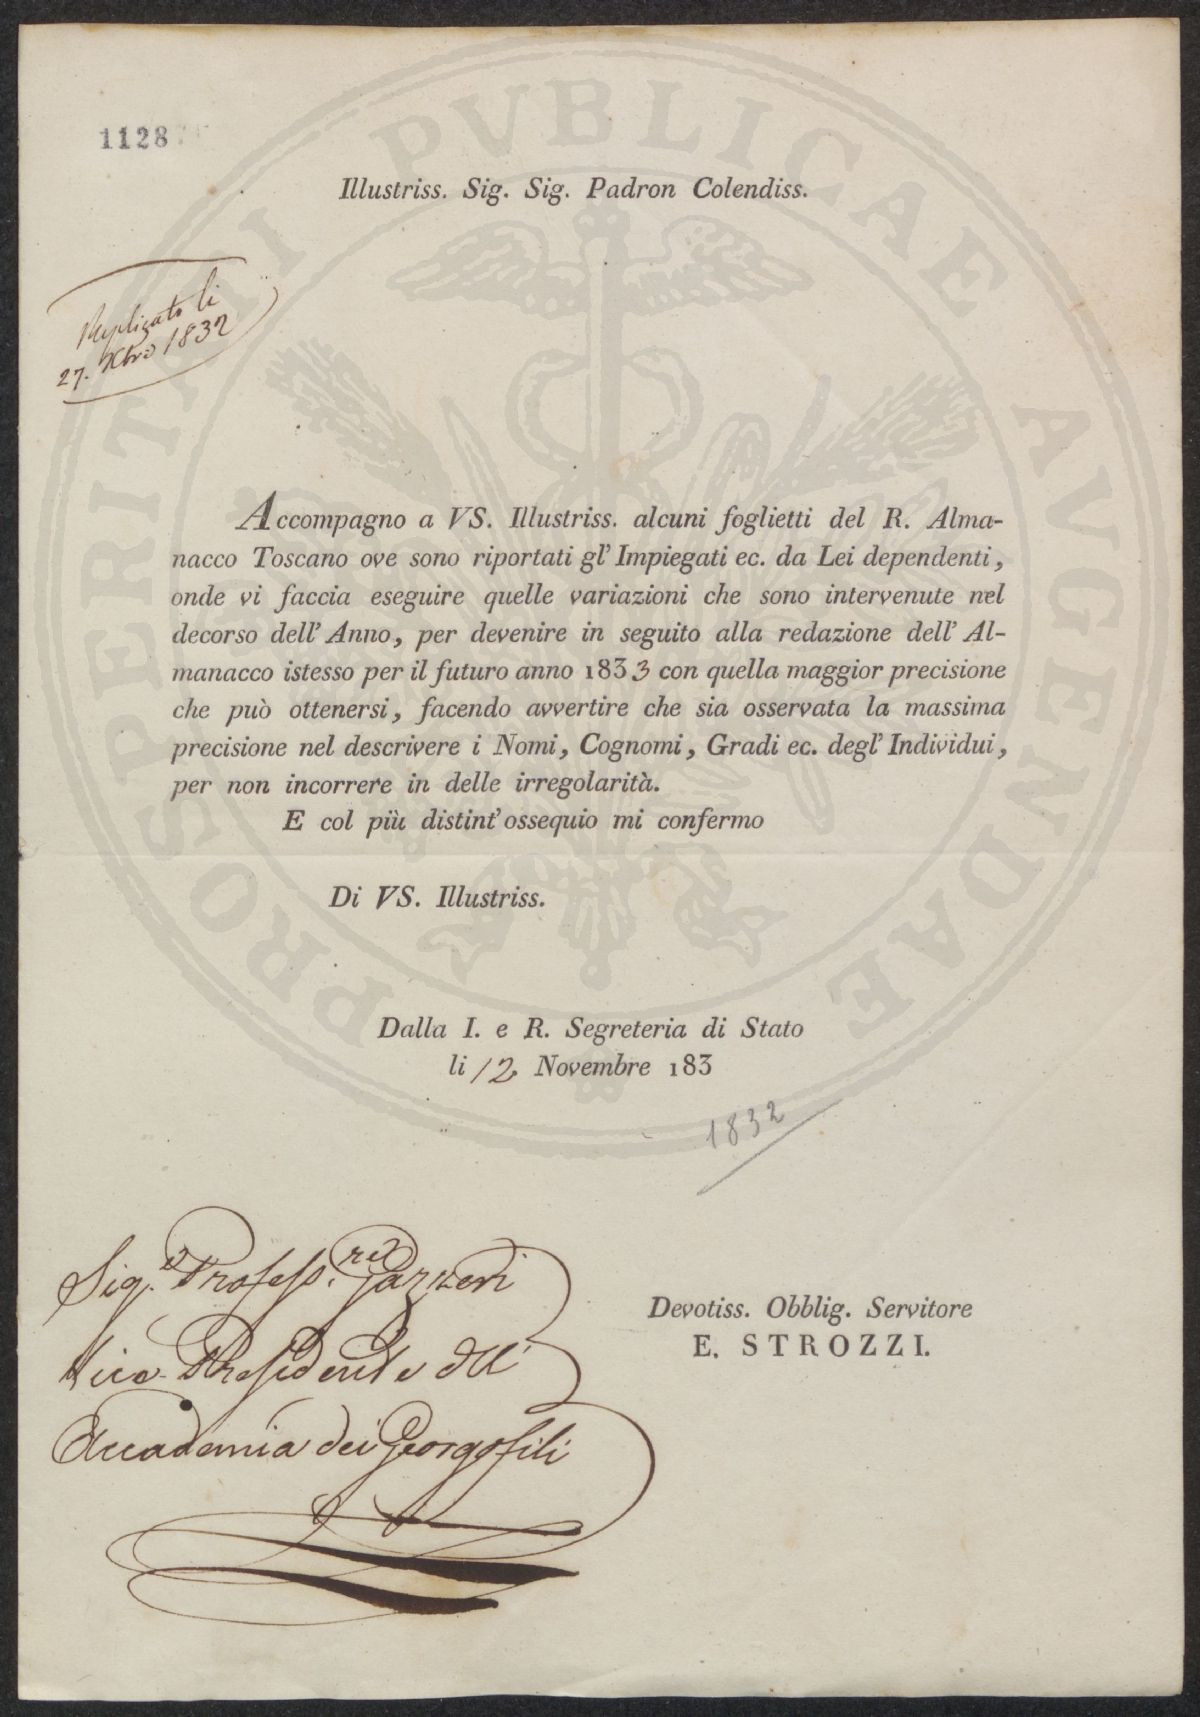 1128
Illustriss. Sig. Sig. Padron Colendiss.
Replicato li
27. Xbre 1832
Accompagno a VS. Illustriss. alcuni foglietti del R. Alma-
nacco Toscano ove sono riportati gl' Impiegati ec. da Lei dependenti,
onde vi faccia eseguire quelle variazioni che sono intervenute nel
decorso dell' Anno, per devenire in seguito alla redazione dell' Al-
manacco istesso per il futuro anno 1833 con quella maggior precisione
che può ottenersi, facendo avvertire che sia osservata la massima
precisione nel descrivere i Nomi, Cognomi, Gradi ec. degl' Individui,
per non incorrere in delle irregolarità.
E col più distint' ossequio mi confermo
Di VS. Illustriss.
Dalla I. e R. Segreteria di Stato
li 12 Novembre 183
1832
Sig.e Profess.re Gazzeri
Vice-Presidente dell'
Accademia dei Georgofili
Devotiss. Obblig. Servitore
E. STROZZI.
PROSPERITATI PVBLICAE AVGENDAE